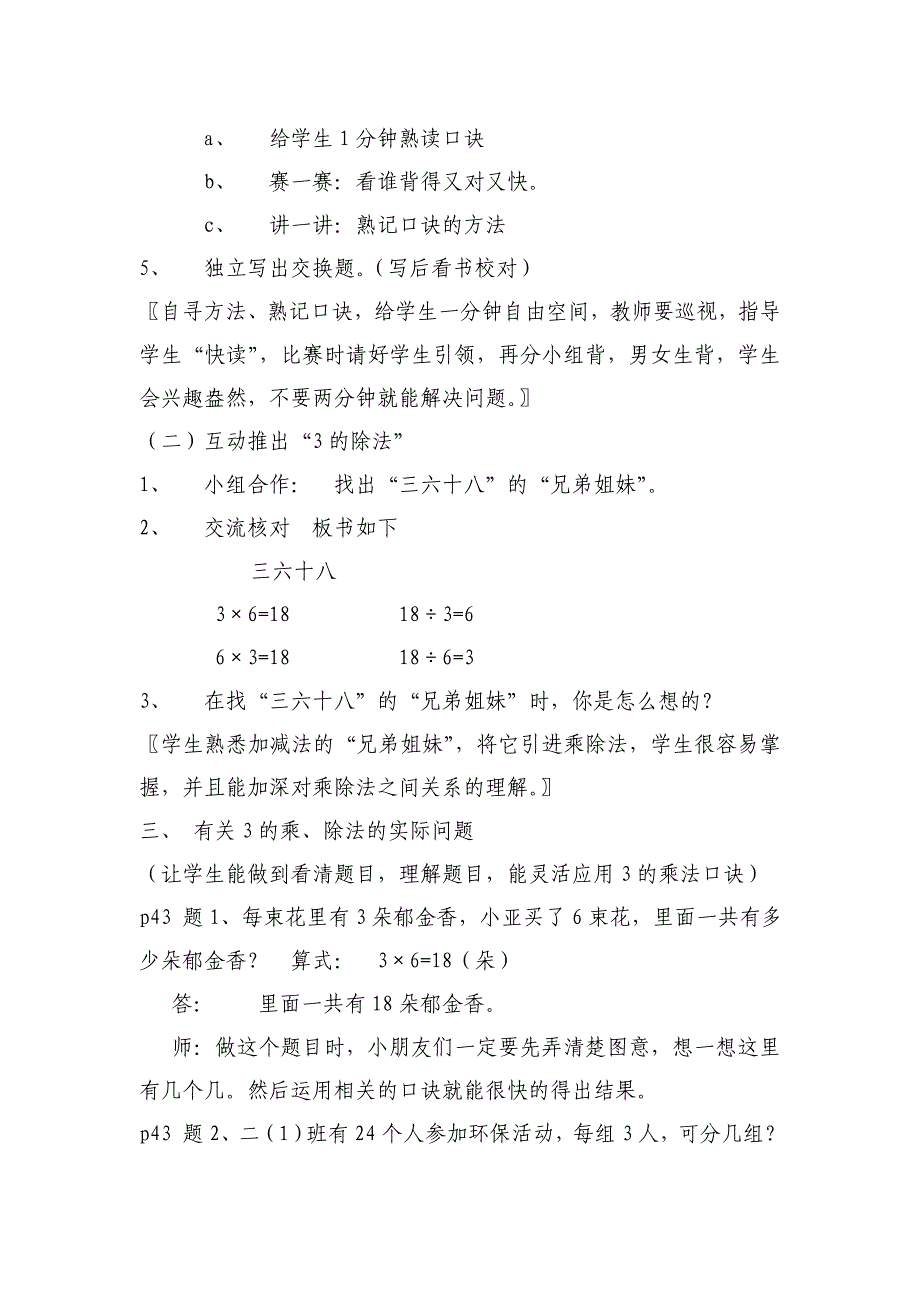 a、 给学生1分钟熟读口诀
b、 赛一赛：看谁背得又对又快。
c、 讲一讲：熟记口诀的方法
5、 独立写出交换题。（写后看书校对）
〖自寻方法、熟记口诀，给学生一分钟自由空间，教师要巡视，指导
学生“快读”，比赛时请好学生引领，再分小组背，男女生背，学生
会兴趣盎然，不要两分钟就能解决问题。〗
（二）互动推出“3的除法”
1、 小组合作： 找出“三六十八”的“兄弟姐妹”。
2、 交流核对 板书如下
三六十八
3×6=18 18÷3=6
6×3=18 18÷6=3
3、 在找“三六十八”的“兄弟姐妹”时，你是怎么想的？
〖学生熟悉加减法的“兄弟姐妹”，将它引进乘除法，学生很容易掌
握，并且能加深对乘除法之间关系的理解。〗
三、 有关3的乘、除法的实际问题
（让学生能做到看清题目，理解题目，能灵活应用3的乘法口诀）
p43 题1、每束花里有3朵郁金香，小亚买了6束花，里面一共有多
少朵郁金香？ 算式： 3×6=18（朵）
答： 里面一共有18朵郁金香。
师：做这个题目时，小朋友们一定要先弄清楚图意，想一想这里
有几个几。然后运用相关的口诀就能很快的得出结果。
p43 题2、二（1）班有24个人参加环保活动，每组3人，可分几组？